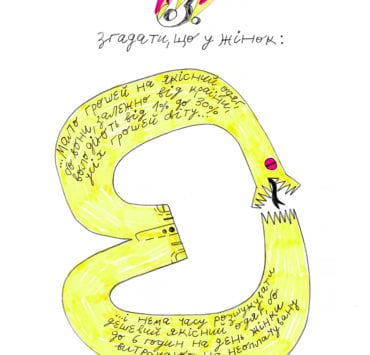 згадати, що у жінок:
...Мало грошей на якісний одяг,
бо вони, залежно від країни,
володіють від 1% до 30%
усіх грошей світу...
...і нема часу розшукувати
дешевий якісний одяг, бо
до 6 годин на день жінки
витрачають на неоплачувану